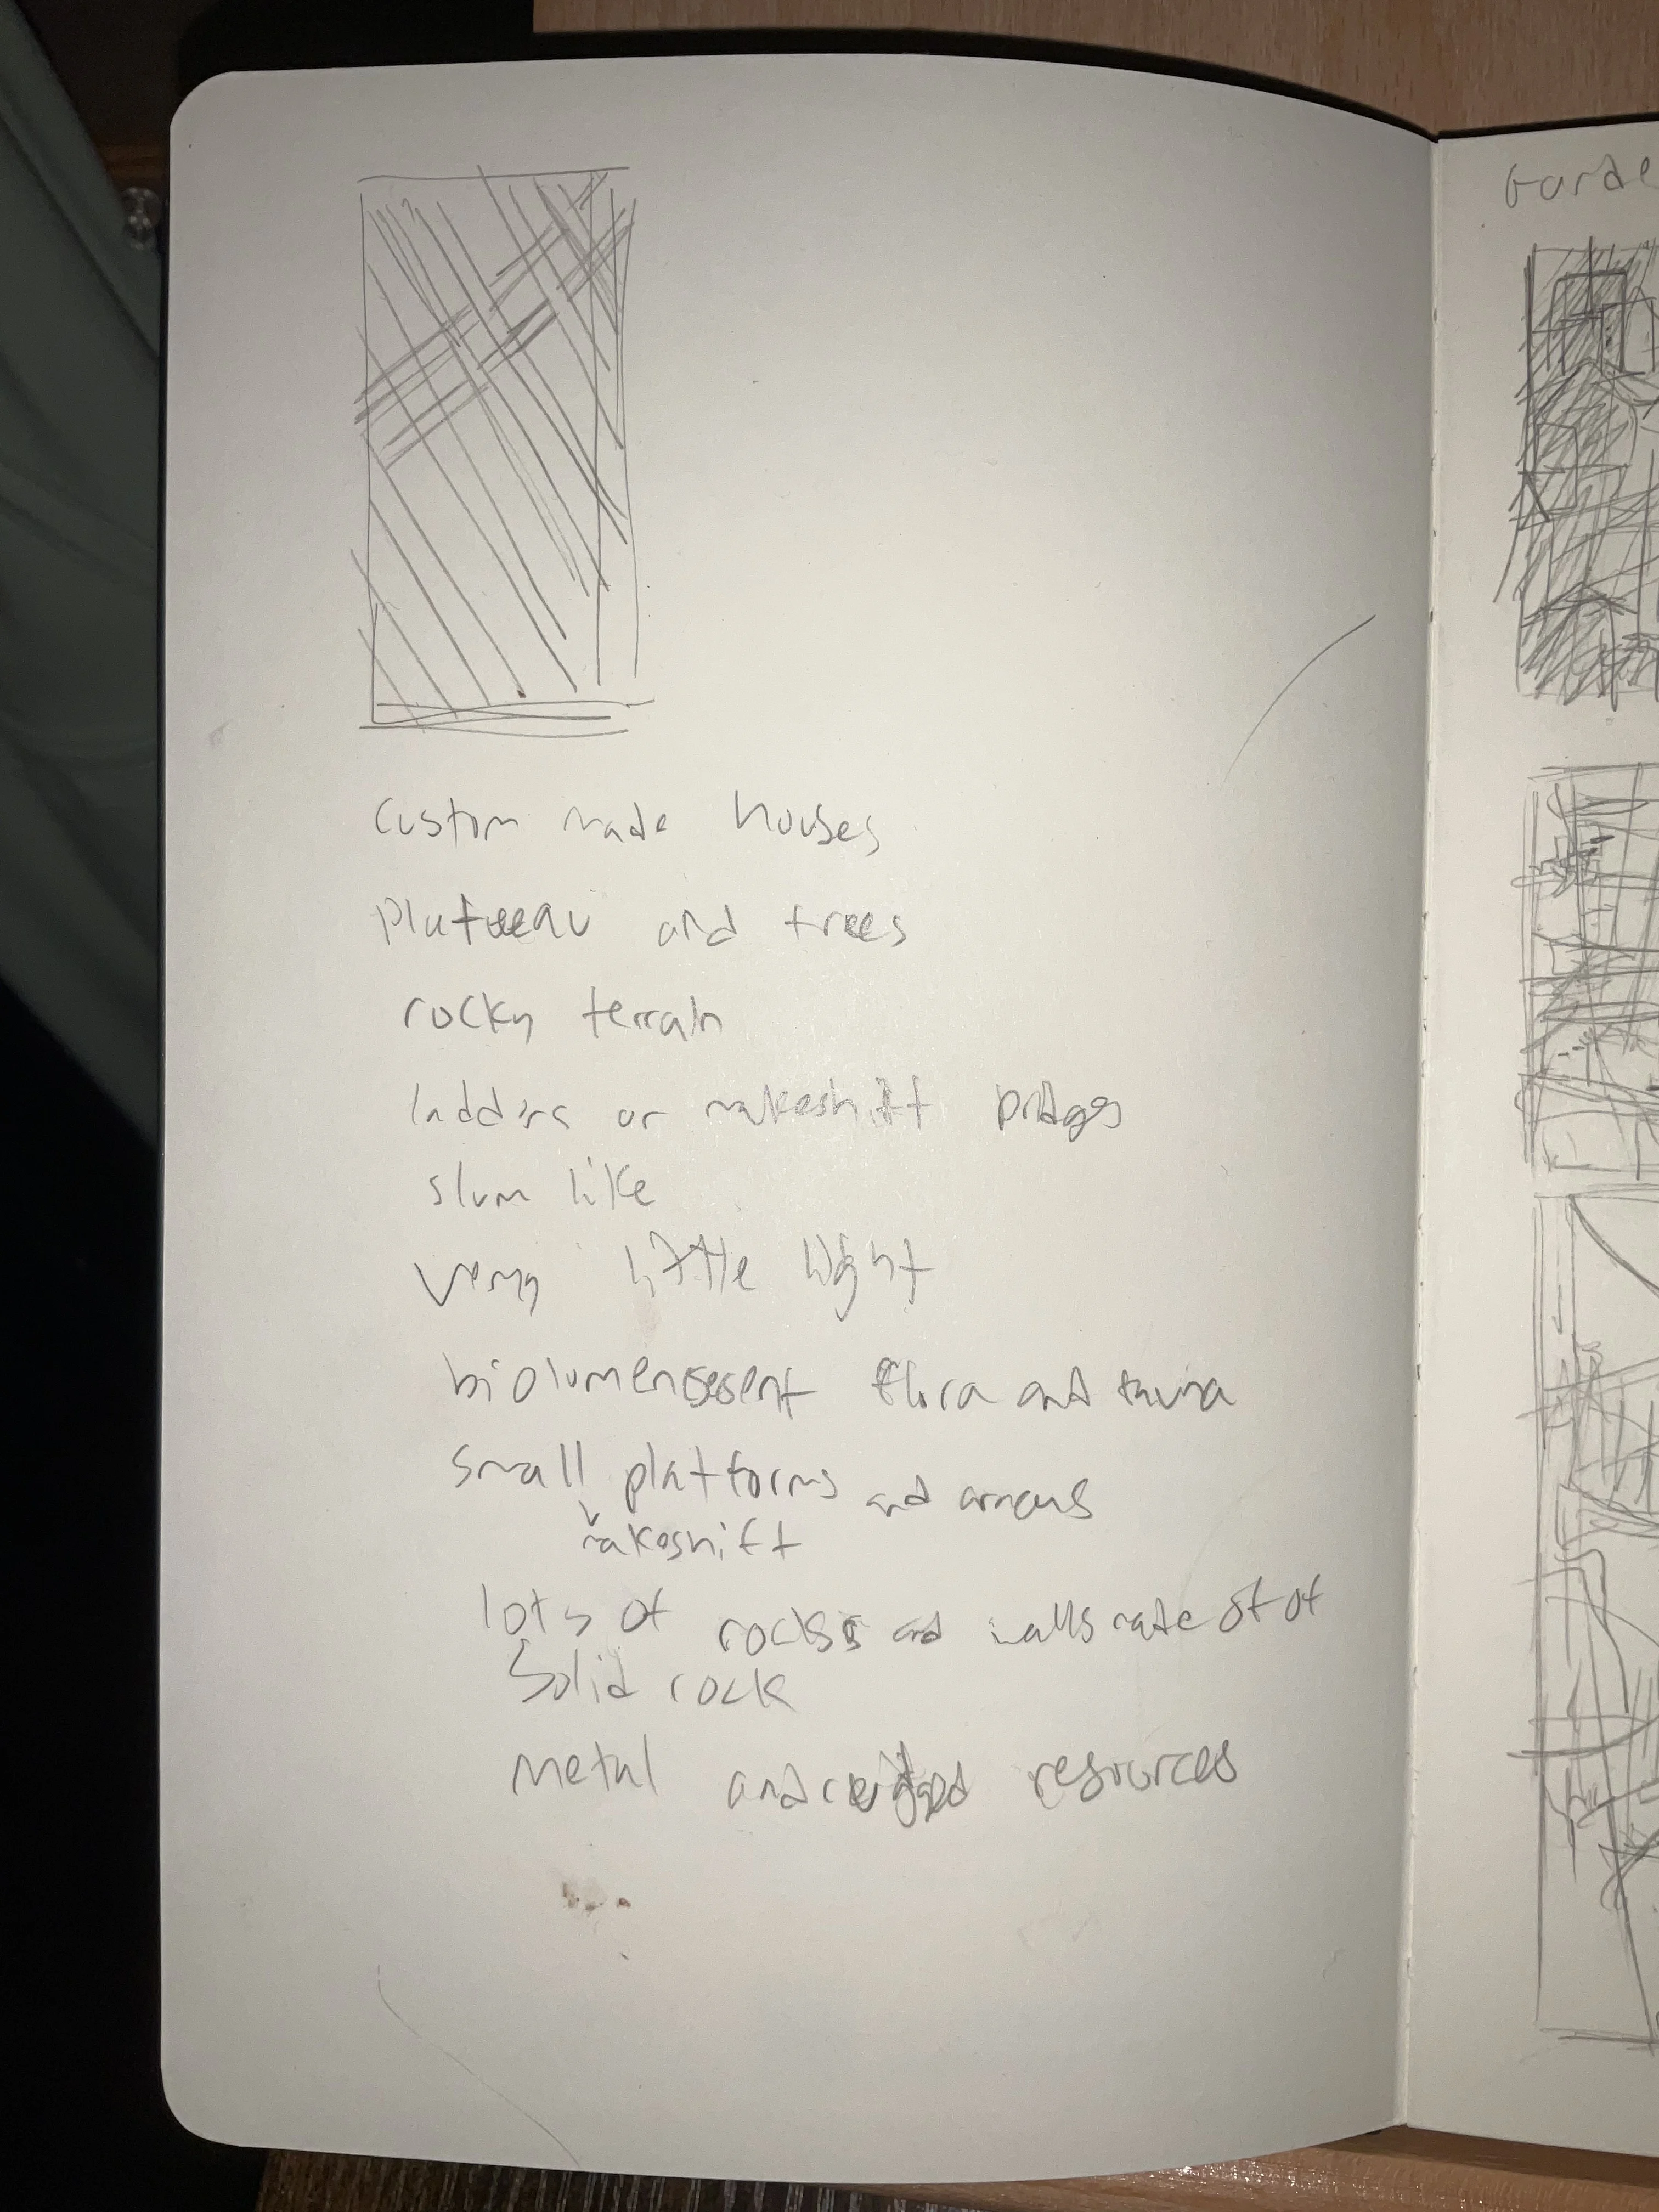 custom made houses
plateeau and trees
rocky terrain
ladders or makeshift bridges
slum like
very little light
biolumensesent flora and fauna
small platforms and areas
makeshift
lots of rocks and walls made of of
solid rock
metal and resources
Garde